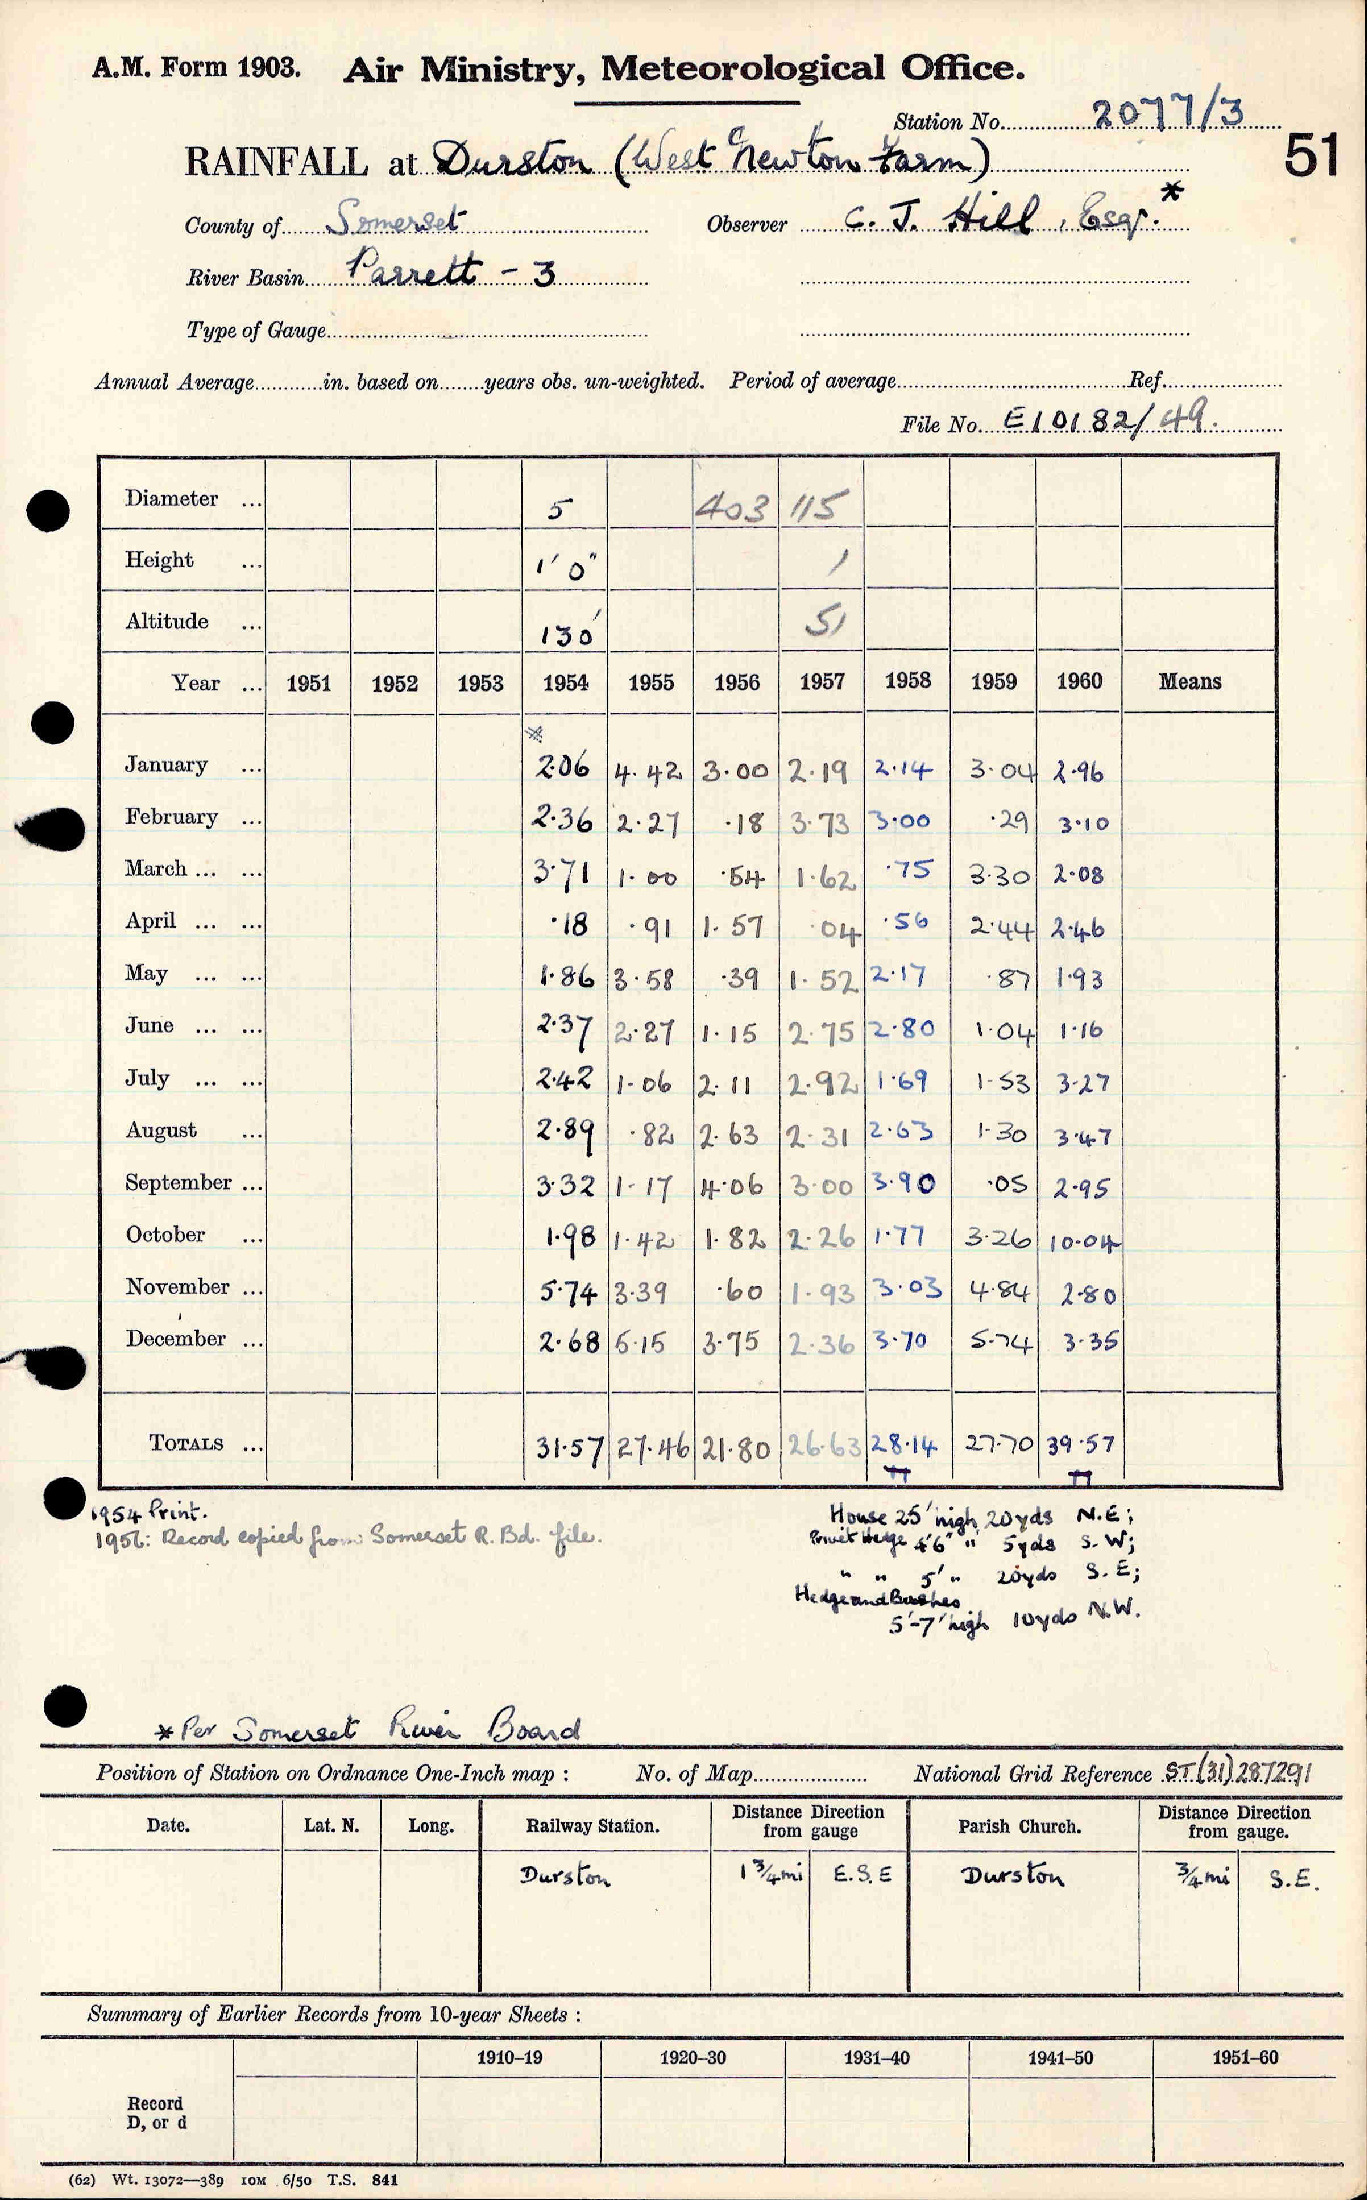 A.M. Form 1903. Air Ministry, Meteorological Office.
Station No. 2077/3
51
RAINFALL at Durston (West Newton Farm)
County of Somerset Observer C. J. Hill, Esqr.*
River Basin Parrett - 3
Type of Gauge
Annual Average in. based on years obs. un-weighted. Period of average Ref.
File No. E10182/49.
Diameter ... 5 403 115
Height ... 1'0" 1
Altitude ... 130' 51
Year ... 1951 1952 1953 1954 1955 1956 1957 1958 1959 1960 Means
*
January ... 2.06 4.42 3.00 2.19 2.14 3.04 2.96
February ... 2.36 2.27 .18 3.73 3.00 .29 3.10
March ... ... 3.71 1.00 .54 1.62 .75 3.30 2.08
April ... ... .18 .91 1.57 .04 .56 2.44 2.46
May ... ... 1.86 3.58 .39 1.52 2.17 .87 1.93
June ... ... 2.37 2.27 1.15 2.75 2.80 1.04 1.16
July ... ... 2.42 1.06 2.11 2.92 1.69 1.53 3.27
August ... 2.89 .82 2.63 2.31 2.63 1.30 3.47
September ... 3.32 1.17 4.06 3.00 3.90 .05 2.95
October ... 1.98 1.42 1.82 2.26 1.77 3.26 10.04
November ... 5.74 3.39 .60 1.93 3.03 4.84 2.80
December ... 2.68 5.15 3.75 2.36 3.70 5.74 3.35
TOTALS ... 31.57 27.46 21.80 26.63 28.14 27.70 39.57
1954 Print.
1956: Record copied from Somerset R. Bd. file.
House 25' high 20yds N.E;
Privet Hedge 4'6" " 5yds S.W;
" " 5' " 20yds S.E;
Hedge and Bushes
5'-7' high 10yds N.W.
*Per Somerset River Board
Position of Station on Ordnance One-Inch map : No. of Map National Grid Reference ST(31)287291
Date. Lat. N. Long. Railway Station. Distance Direction from gauge Parish Church. Distance Direction from gauge.
Durston 1 3/4 mi E.S.E Durston 3/4 mi S.E.
Summary of Earlier Records from 10-year Sheets :
1910–19 1920–30 1931–40 1941–50 1951–60
Record
D, or d
(62) Wt. 13072—389 10M 6/50 T.S. 841